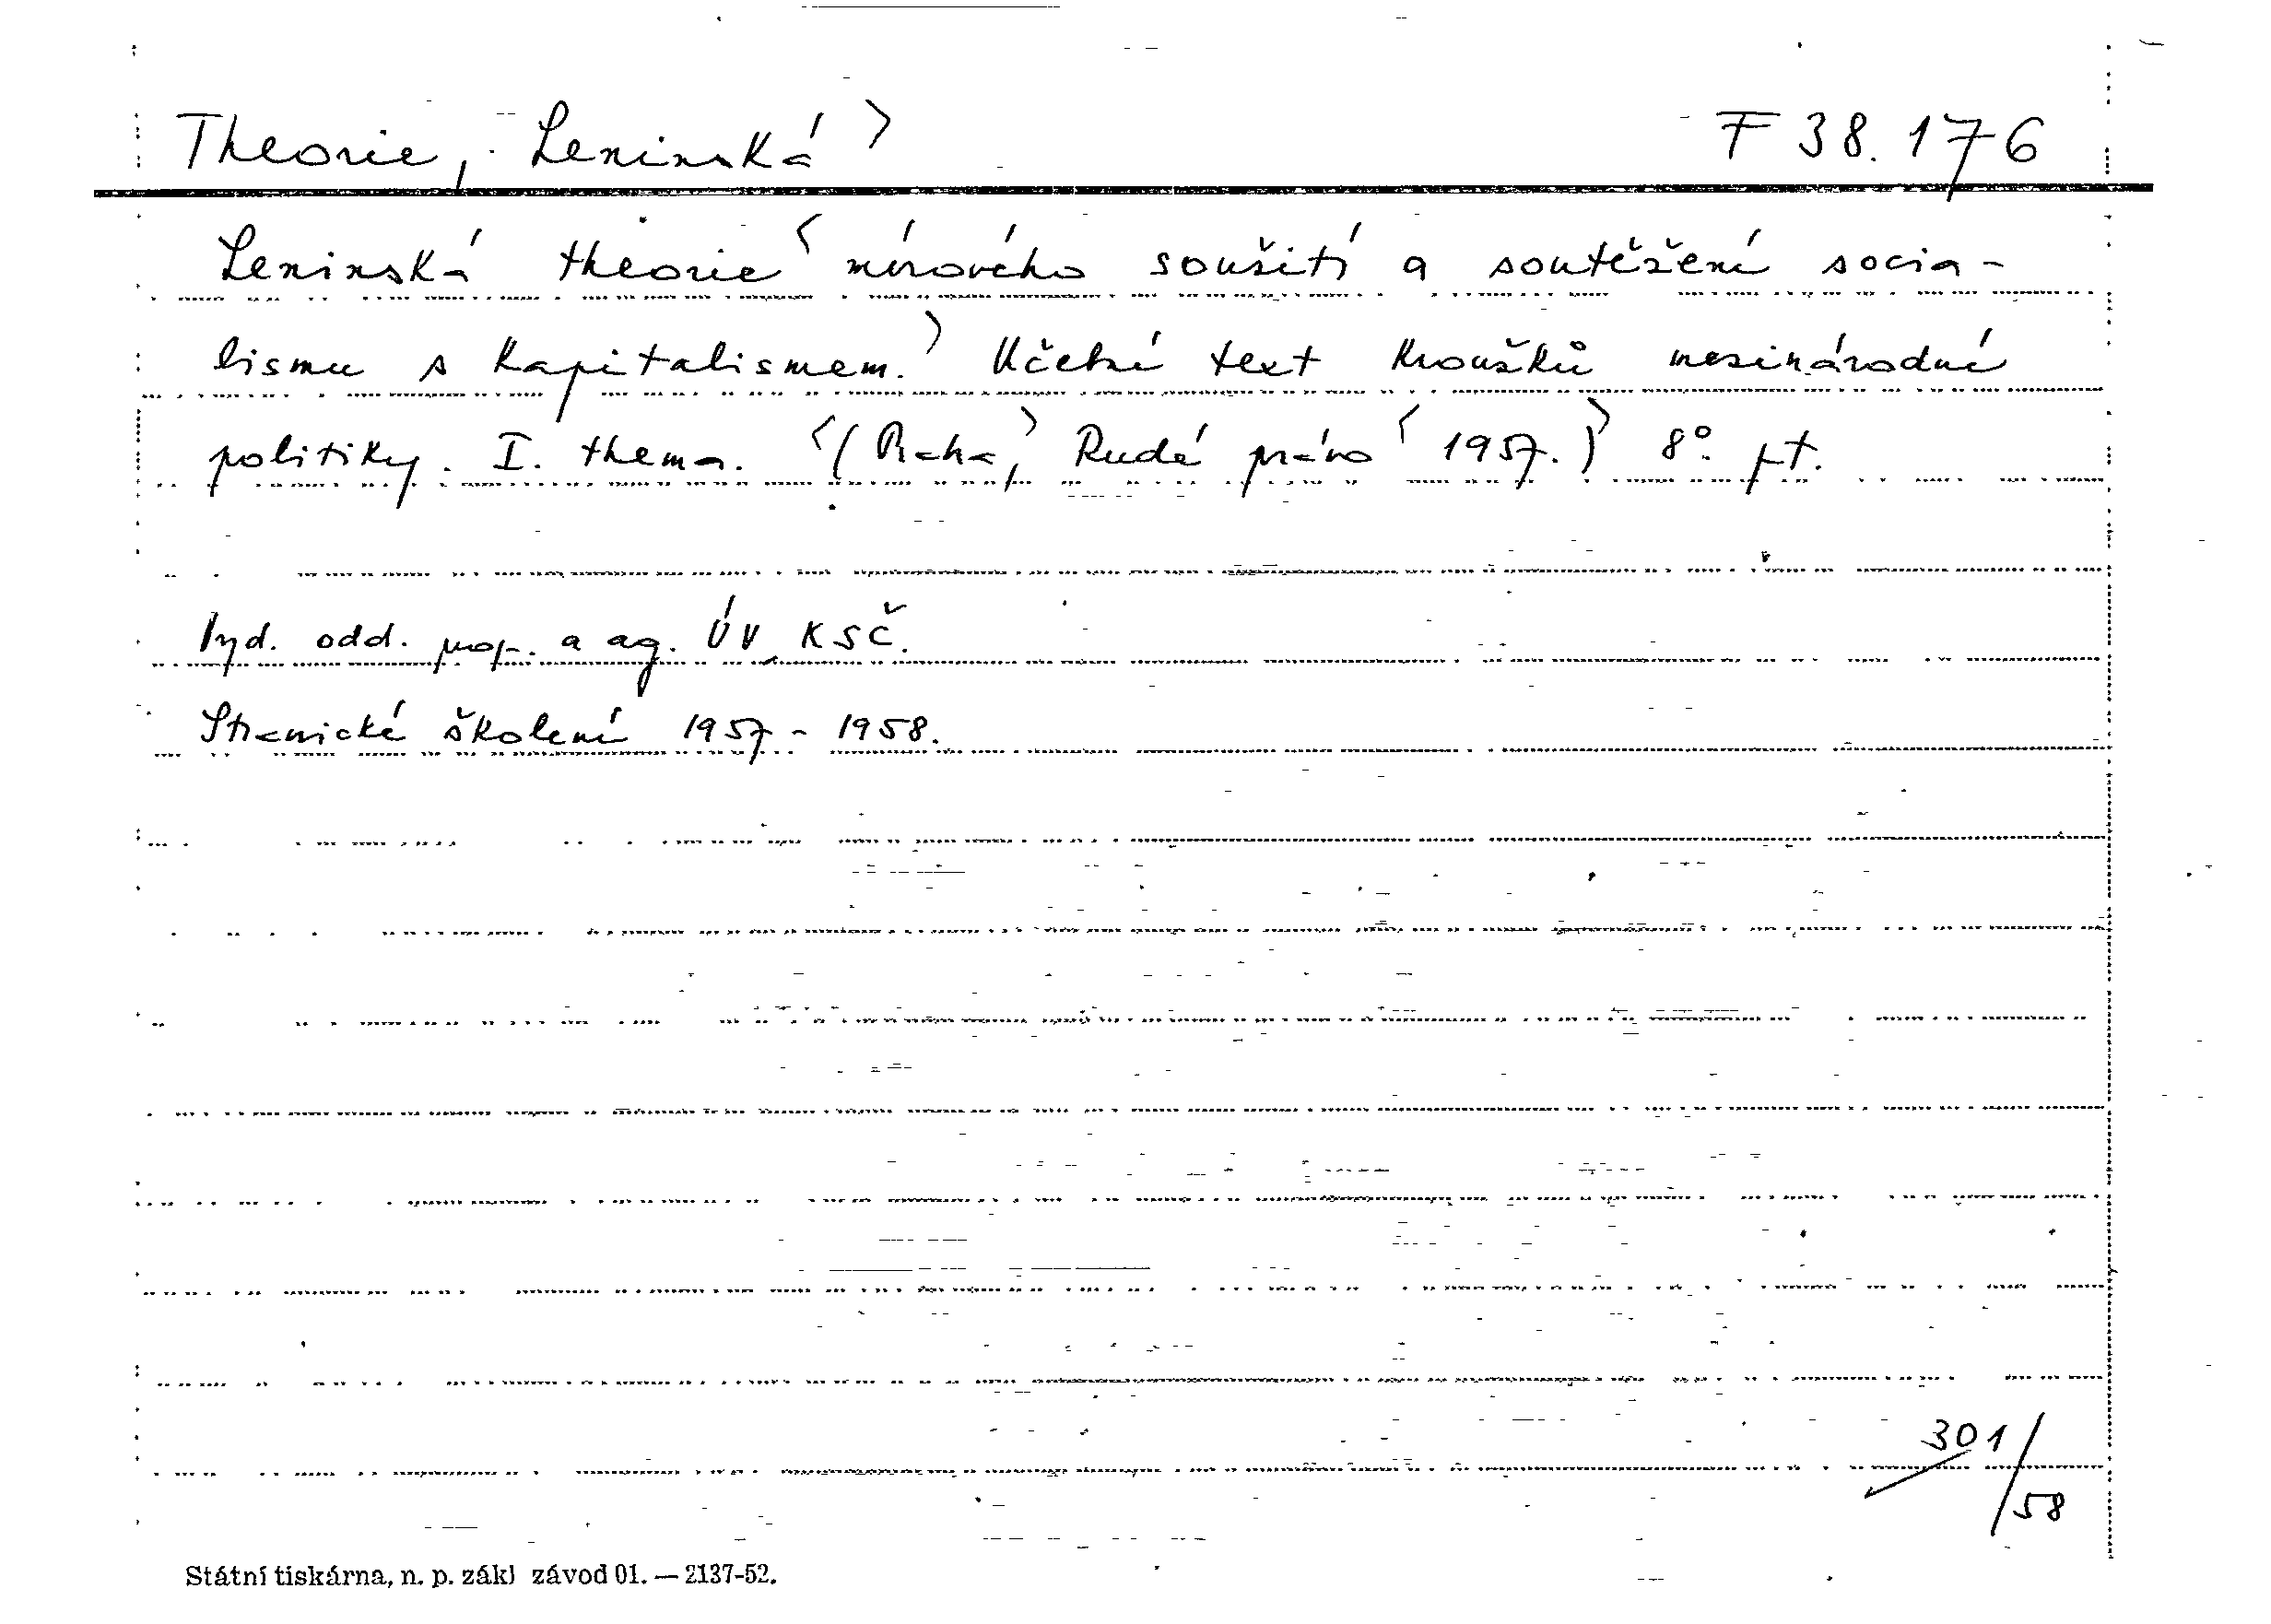 Theorie, Leninská〉 F 38.176
Leninská theorie〈 mírového soužití a soutěžení socia-
lismu s kapitalismem.〉 Učební text kroužků mezinárodní
politiky. I. thema. 〈(Praha,〉 Rudé právo〈 1957.)〉 8°. pt.
Vyd. odd. prop. a ag. ÚV KSČ.
Stranické školení 1957-1958.
301/58
Státní tiskárna, n. p. zákl závod 01. — 2137-52.